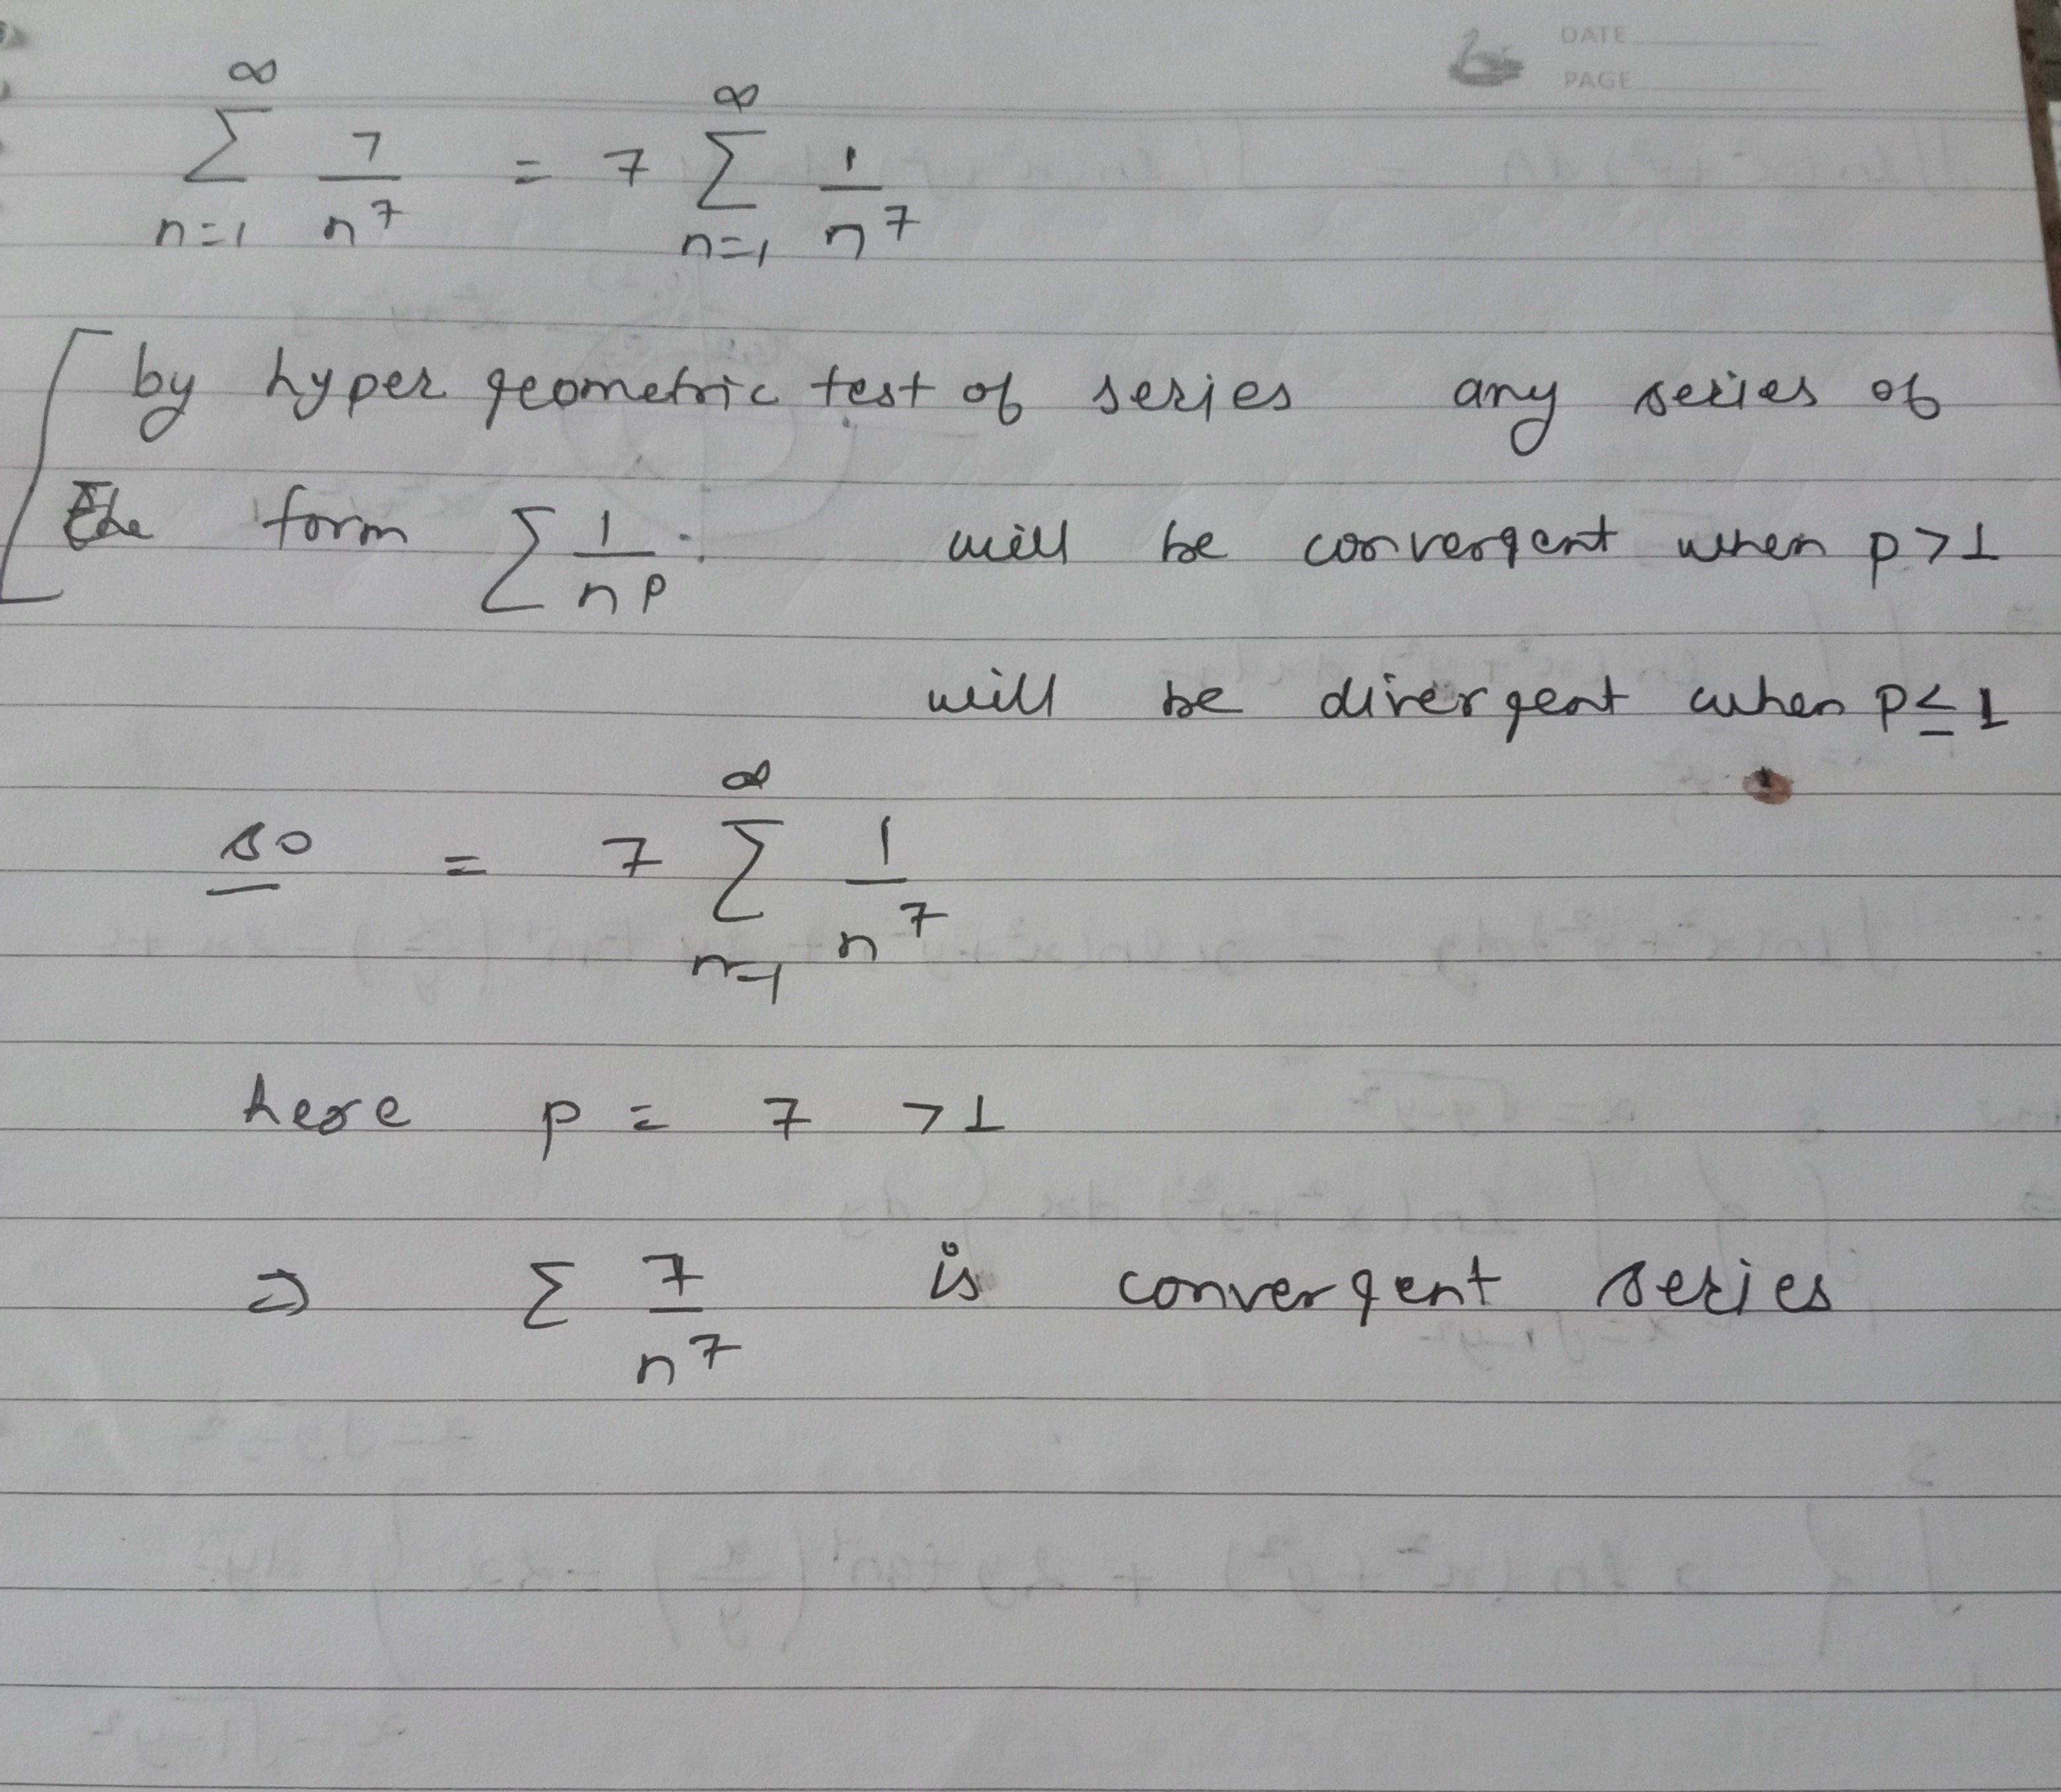 DATE
PAGE
∞ ∑ n=1 7/n^7 = 7 ∞ ∑ n=1 1/n^7
by hyper geometric test of series any series of
the form ∑ 1/n^p will be convergent when p>1
will be divergent when p≤1
so = 7 ∞ ∑ n=1 1/n^7
here p = 7 >1
⇒ ∑ 7/n^7 is convergent series